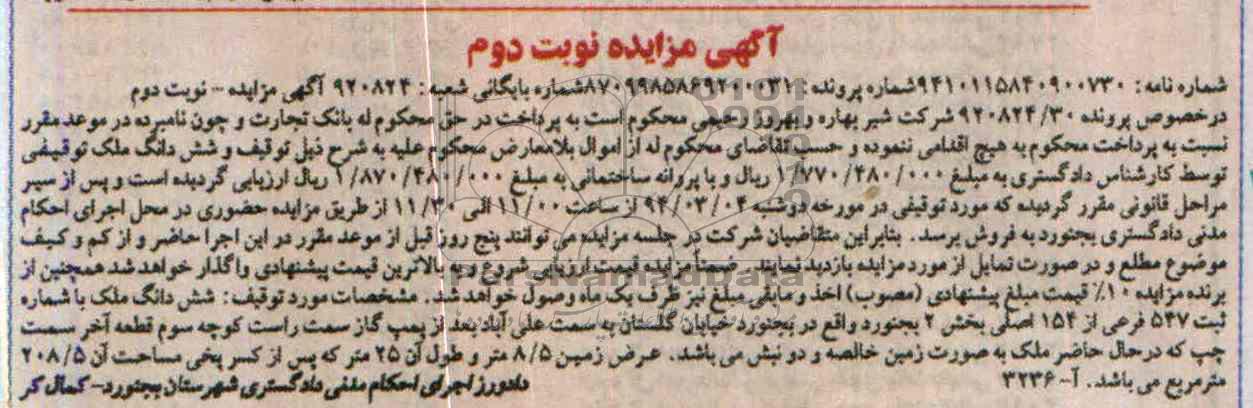 آگهی مزایده نوبت دوم
شماره نامه: ۹۴۱۰۱۱۵۸۴۰۹۰۰۷۳۰ شماره پرونده: ۸۷۰۹۹۸۵۸۶۹۲۰۰۰۳۱ شماره بایگانی شعبه: ۹۲۰۸۲۴ آگهی مزایده - نوبت دوم
درخصوص پرونده ۹۲۰۸۲۴/۳۰ شرکت شیر بهاره و بهروز رحیمی محکوم است به پرداخت در حق محکوم له بانک تجارت و چون نامبرده در موعد مقرر
نسبت به پرداخت محکوم به هیچ اقدامی ننموده و حسب تقاضای محکوم له از اموال بلامعارض محکوم علیه به شرح ذیل توقیف و شش دانگ ملک توقیفی
توسط کارشناس دادگستری به مبلغ ۱/۷۷۰/۴۸۰/۰۰۰ ریال و با پروانه ساختمانی به مبلغ ۱/۸۷۰/۴۸۰/۰۰۰ ریال ارزیابی گردیده است و پس از سیر
مراحل قانونی مقرر گردیده که مورد توقیفی در مورخه دوشنبه ۹۴/۰۳/۰۴ از ساعت ۱۱/۰۰ الی ۱۱/۳۰ از طریق مزایده حضوری در محل اجرای احکام
مدنی دادگستری بجنورد به فروش برسد. بنابراین متقاضیان شرکت در جلسه مزایده می توانند پنج روز قبل از موعد مقرر در این اجرا حاضر و از کم و کیف
موضوع مطلع و در صورت تمایل از مورد مزایده بازدید نمایند. ضمناً مزایده قیمت ارزیابی شروع و به بالاترین قیمت پیشنهادی واگذار خواهد شد همچنین از
برنده مزایده ۱۰٪ قیمت مبلغ پیشنهادی (مصوب) اخذ و مابقی مبلغ نیز ظرف یک ماه وصول خواهد شد. مشخصات مورد توقیف: شش دانگ ملک با شماره
ثبت ۵۴۷ فرعی از ۱۵۴ اصلی بخش ۲ بجنورد واقع در بجنورد خیابان گلستان به سمت علی آباد بعد از پمپ گاز سمت راست کوچه سوم قطعه آخر سمت
چپ که درحال حاضر ملک به صورت زمین خالصه و دو نبش می باشد. عرض زمین ۸/۵ متر و طول آن ۲۵ متر که پس از کسر پخی مساحت آن ۲۰۸/۵
مترمربع می باشد. آ- ۳۲۳۶
دادورز اجرای احکام مدنی دادگستری شهرستان بجنورد- کمال کر
ParsNamadData